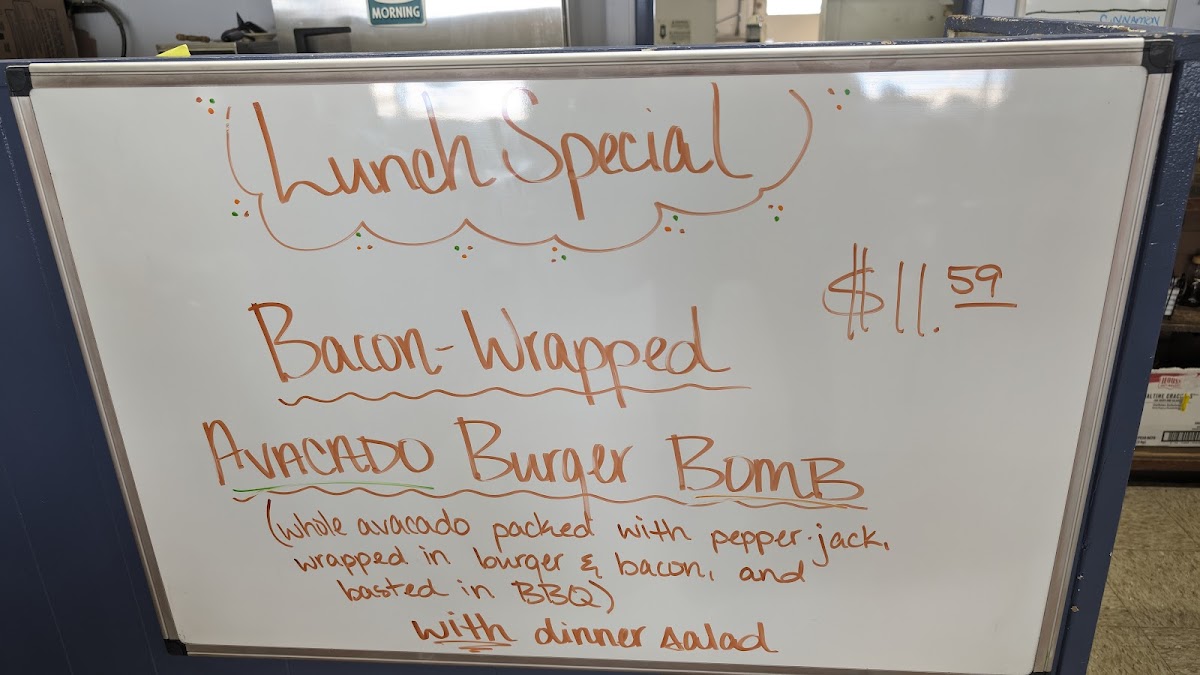 MORNING
CINNAMON
Lunch Special
$11.59
Bacon-Wrapped
AVACADO Burger BOMB
(whole avacado packed with pepper-jack,
wrapped in burger & bacon, and
basted in BBQ)
with dinner salad